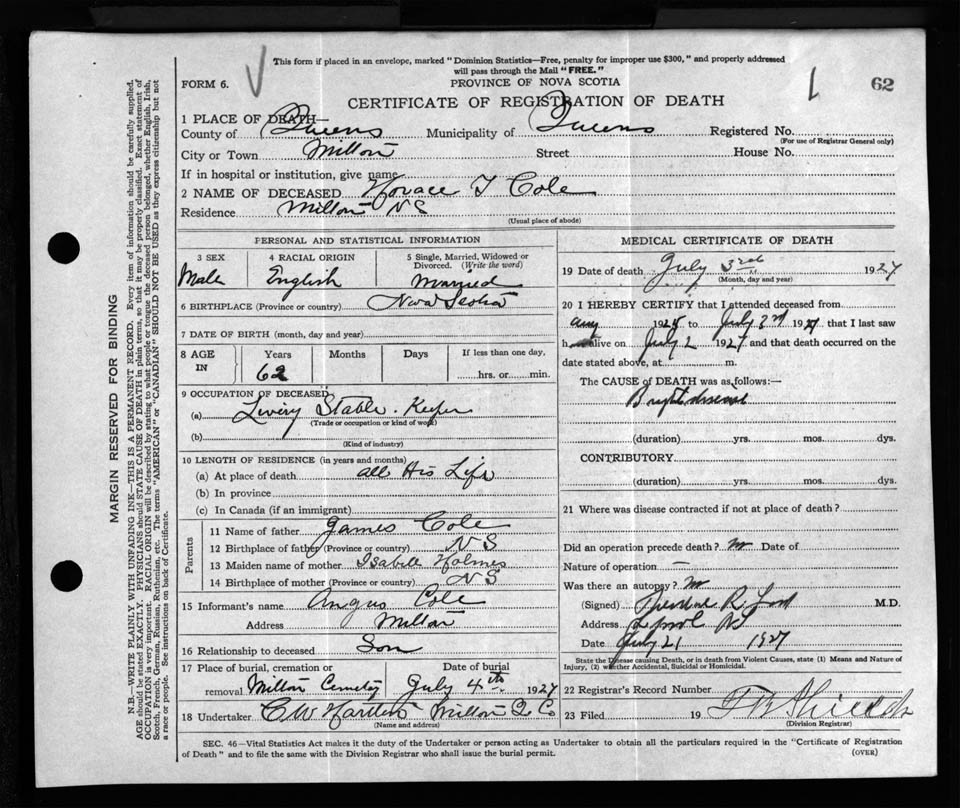 This form if placed in an envelope, marked "Dominion Statistics—Free, penalty for improper use $300," and properly addressed
will pass through the Mail "FREE."
FORM 6.
PROVINCE OF NOVA SCOTIA
62
CERTIFICATE OF REGISTRATION OF DEATH
1 PLACE OF DEATH—
County of Queens Municipality of Queens Registered No.
(For use of Registrar General only)
City or Town Milton Street House No.
If in hospital or institution, give name
2 NAME OF DECEASED Horace T Cole
Residence Milton N S
(Usual place of abode)
PERSONAL AND STATISTICAL INFORMATION
3 SEX 4 RACIAL ORIGIN 5 Single, Married, Widowed or Divorced. (Write the word)
Male English Married
6 BIRTHPLACE (Province or country) Nova Scotia
7 DATE OF BIRTH (month, day and year)
8 AGE IN Years Months Days If less than one day,
62 hrs. or min.
9 OCCUPATION OF DECEASED
(a) Livery Stable Keeper
(Trade or occupation or kind of work)
(b)
(Kind of industry)
10 LENGTH OF RESIDENCE (in years and months)
(a) At place of death all His Life
(b) In province
(c) In Canada (if an immigrant)
Parents
11 Name of father James Cole
12 Birthplace of father (Province or country) N S
13 Maiden name of mother Isabell Holmes
14 Birthplace of mother (Province or country) N S
15 Informant's name Angus Cole
Address Milton
16 Relationship to deceased Son
17 Place of burial, cremation or Date of burial
removal Milton Cemetery July 4th 1927
18 Undertaker C W Milton Q Co
(Name and address)
MEDICAL CERTIFICATE OF DEATH
19 Date of death July 3rd 1927
(Month, day and year)
20 I HEREBY CERTIFY that I attended deceased from
Aug 1925 to July 3rd 1927 that I last saw
h alive on July 2 1927 and that death occurred on the
date stated above, at m.
The CAUSE OF DEATH was as follows:—
Brights disease
(duration) yrs. mos. dys.
CONTRIBUTORY
(duration) yrs. mos. dys.
21 Where was disease contracted if not at place of death?
Did an operation precede death? no Date of
Nature of operation —
Was there an autopsy? no
(Signed) R. Ford M.D.
Address Lpool NS
Date July 21 1927
State the Disease causing Death, or in death from Violent Causes, state (1) Means and Nature of
Injury, (2) whether Accidental, Suicidal or Homicidal.
22 Registrar's Record Number
23 Filed 19 Shields
(Division Registrar)
SEC. 46—Vital Statistics Act makes it the duty of the Undertaker or person acting as Undertaker to obtain all the particulars required in the "Certificate of Registration
of Death" and to file the same with the Division Registrar who shall issue the burial permit.
(OVER)
MARGIN RESERVED FOR BINDING
N.B.—WRITE PLAINLY WITH UNFADING INK—THIS IS A PERMANENT RECORD. Every item of information should be carefully supplied.
AGE should be stated EXACTLY. PHYSICIANS should STATE CAUSE OF DEATH in plain terms, so that it may be properly classified. Exact statement of
OCCUPATION is very important. RACIAL ORIGIN will be described by stating to what people or tongue the deceased person belonged, whether English, Irish,
Scotch, French, German, Russian, Ruthenian, etc. The terms "AMERICAN" or "CANADIAN" SHOULD NOT BE USED as they express citizenship but not
a race or people. See instructions on back of Certificate.